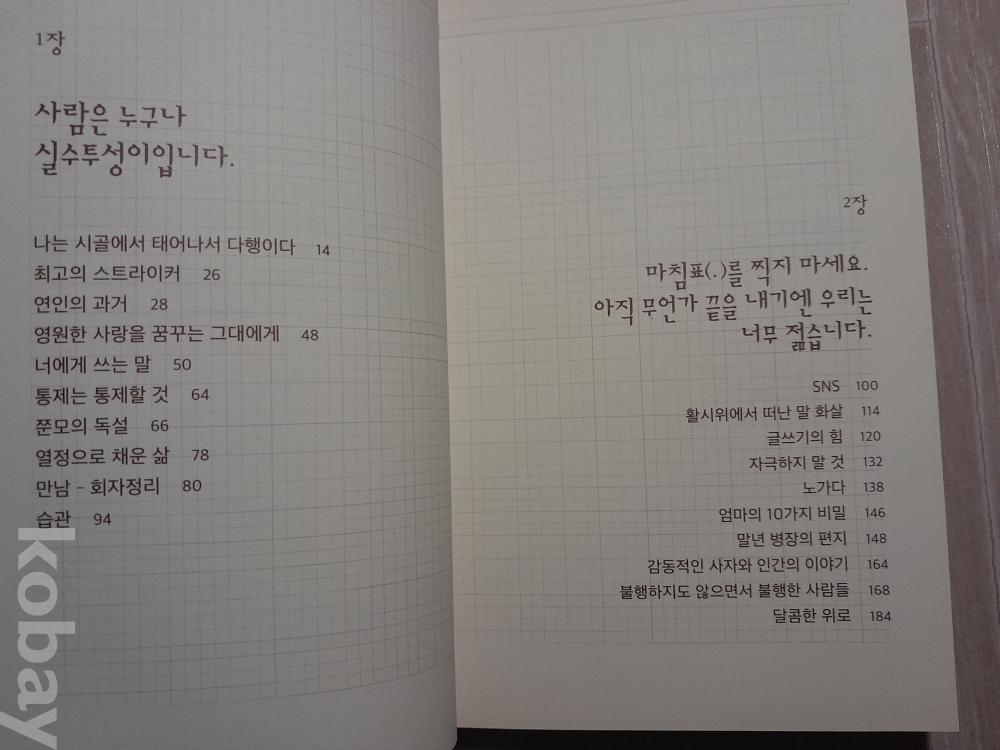 1장
사람은 누구나
실수투성이입니다.
나는 시골에서 태어나서 다행이다 14
최고의 스트라이커 26
연인의 과거 28
영원한 사랑을 꿈꾸는 그대에게 48
너에게 쓰는 말 50
통제는 통제할 것 64
쭌모의 독설 66
열정으로 채운 삶 78
만남 - 회자정리 80
습관 94
2장
마침표(.)를 찍지 마세요.
아직 무언가 끝을 내기엔 우리는
너무 젊습니다.
SNS 100
활시위에서 떠난 말 화살 114
글쓰기의 힘 120
자극하지 말 것 132
노가다 138
엄마의 10가지 비밀 146
말년 병장의 편지 148
감동적인 사자와 인간의 이야기 164
불행하지도 않으면서 불행한 사람들 168
달콤한 위로 184
kobay